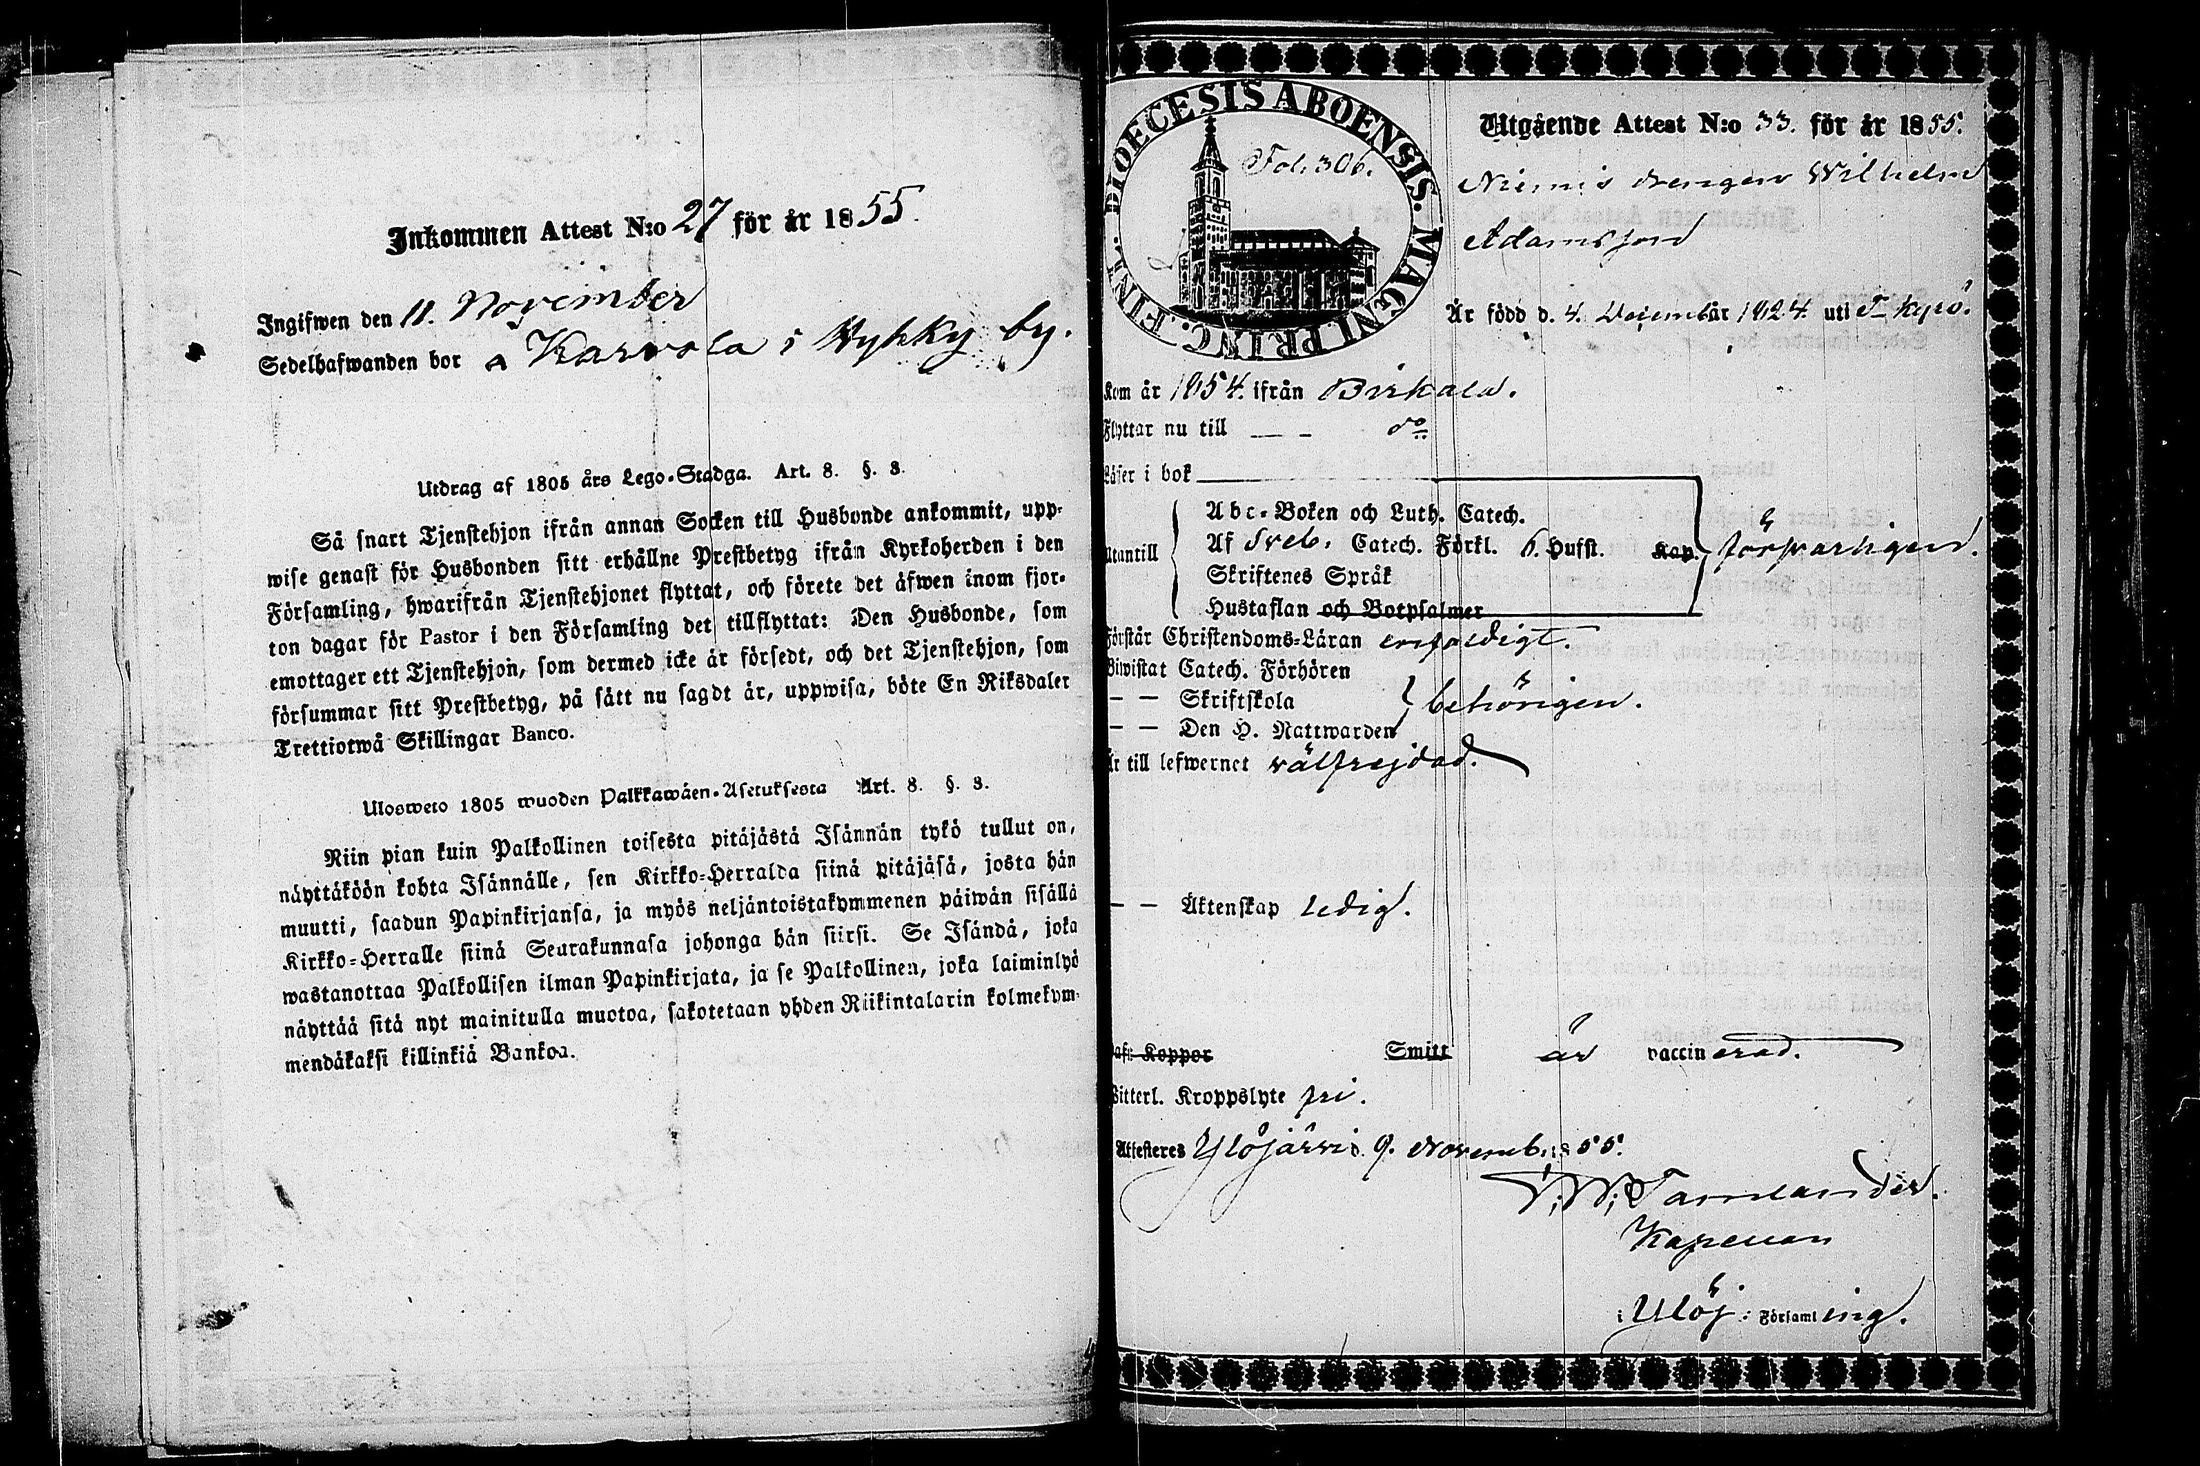 Inkommen Attest N:o 27 för år 1855.
Ingifwen den 11. November
Sedelhafwanden bor à Karvola i Hyhky by.
Utdrag af 1805 års Lego-Stadga. Art. 8. §. 3.
Så snart Tjenstehjon ifrån annan Socken till Husbonde ankommit, upp-
wise genast för Husbonden sitt erhållne Prestbetyg ifrån Kyrkoherden i den
Församling, hwarifrån Tjenstehjonet flyttat, och förete det äfwen inom fjor-
ton dagar för Pastor i den Församling det tillflyttat: Den Husbonde, som
emottager ett Tjenstehjon, som dermed icke är försedt, och det Tjenstehjon, som
försummar sitt Prestbetyg, på sätt nu sagdt är, uppwisa, böte En Riksdaler
Trettiotwå Skillingar Banco.
Ulosweto 1805 wuoden Palkkawäen-Asetuksesta Art. 8. §. 3.
Niin pian kuin Palkollinen toisesta pitäjästä Isännän tykö tullut on,
näyttäköön kohta Isännälle, sen Kirkko-Herralda siinä pitäjäsä, josta hän
muutti, saadun Papinkirjansa, ja myös neljäntoistakymmenen päiwän sisällä
Kirkko-Herralle siinä Seurakunnasa johonga hän siirsi. Se Isändä, joka
wastanottaa Palkollisen ilman Papinkirjata, ja se Palkollinen, joka laiminlyö
näyttää sitä nyt mainitulla muotoa, sakotetaan yhden Riikintalarin kolmekym-
mendäkaksi killinkiä Bankoa.
DIOECESIS ABOENSIS. MAGNI PRINC. FINL.
Fol. 306.
Utgående Attest N:o 33. för år 1855.
Niemis drengen Wilhelm
Adamsson
Är född d. 4. Decemb år 1824 uti T kyrö.
Kom år 1854. ifrån Birkala.
Flyttar nu till — — do
Läser i bok
Abc-Boken och Luth. Catech.
Utantill Af Sveb. Catech. Förkl. 6. Hufst. Kap. försvarligen.
Skriftenes Språk
Hustaflan och Botpsalmer
Förstår Christendoms-Läran enfaldigt.
Biwistat Catech. Förhören
— — Skriftskola behörigen.
— — Den H. Nattwarden
Är till lefwernet välfrejdad.
— — Äktenskap ledig.
Haft Koppor Smitt är vaccinerad.
Witterl. Kroppslyte fri.
Attesteres Ylöjärvi d. 9. Novemb. 1855.
Kapellan
i Ylöj: Församling.